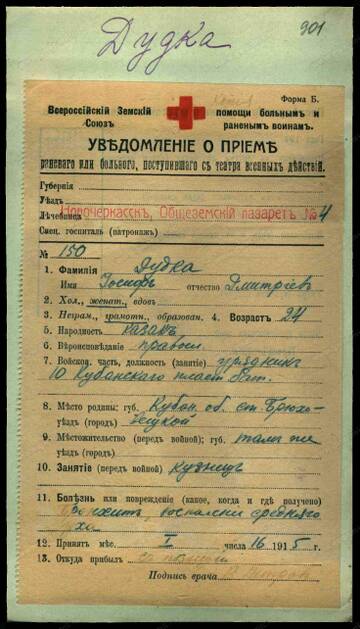 901
Дудка
Форма Б.
Всероссійскій Земскій Союзъ
помощи больнымъ и раненымъ воинамъ.
УВѢДОМЛЕНІЕ О ПРІЕМѢ
раненаго или больного, поступившаго съ театра военныхъ дѣйствій.
Губернія
Уѣздъ
Лѣчебница Новочеркасскъ, Общеземскій лазаретъ № 4
Спец. госпиталь (патронажъ)
№ 150
1. Фамилія Дудка
Имя Іосифъ отчество Дмитріев
2. Хол., женат., вдовъ
3. Неграм., грамотн., образован. 4. Возрастъ 24
5. Народность казакъ
6. Вѣроисповѣданіе правосл.
7. Войсков. часть, должность (занятіе) урядникъ
10 Кубанскаго пласт. бат.
8. Мѣсто родины; губ. Кубан. об. ст. Брюхо-
уѣздъ (городъ) вецкой
9. Мѣстожительство (передъ войной); губ. тамъ же
уѣздъ (городъ)
10. Занятіе (передъ войной) кузнецъ
11. Болѣзнь или поврежденіе (какое, когда и гдѣ получено)
Бронхитъ, воспаленіе средняго
уха
12. Принятъ мѣс. I числа 16 1915 г.
13. Откуда прибылъ
Подпись врача